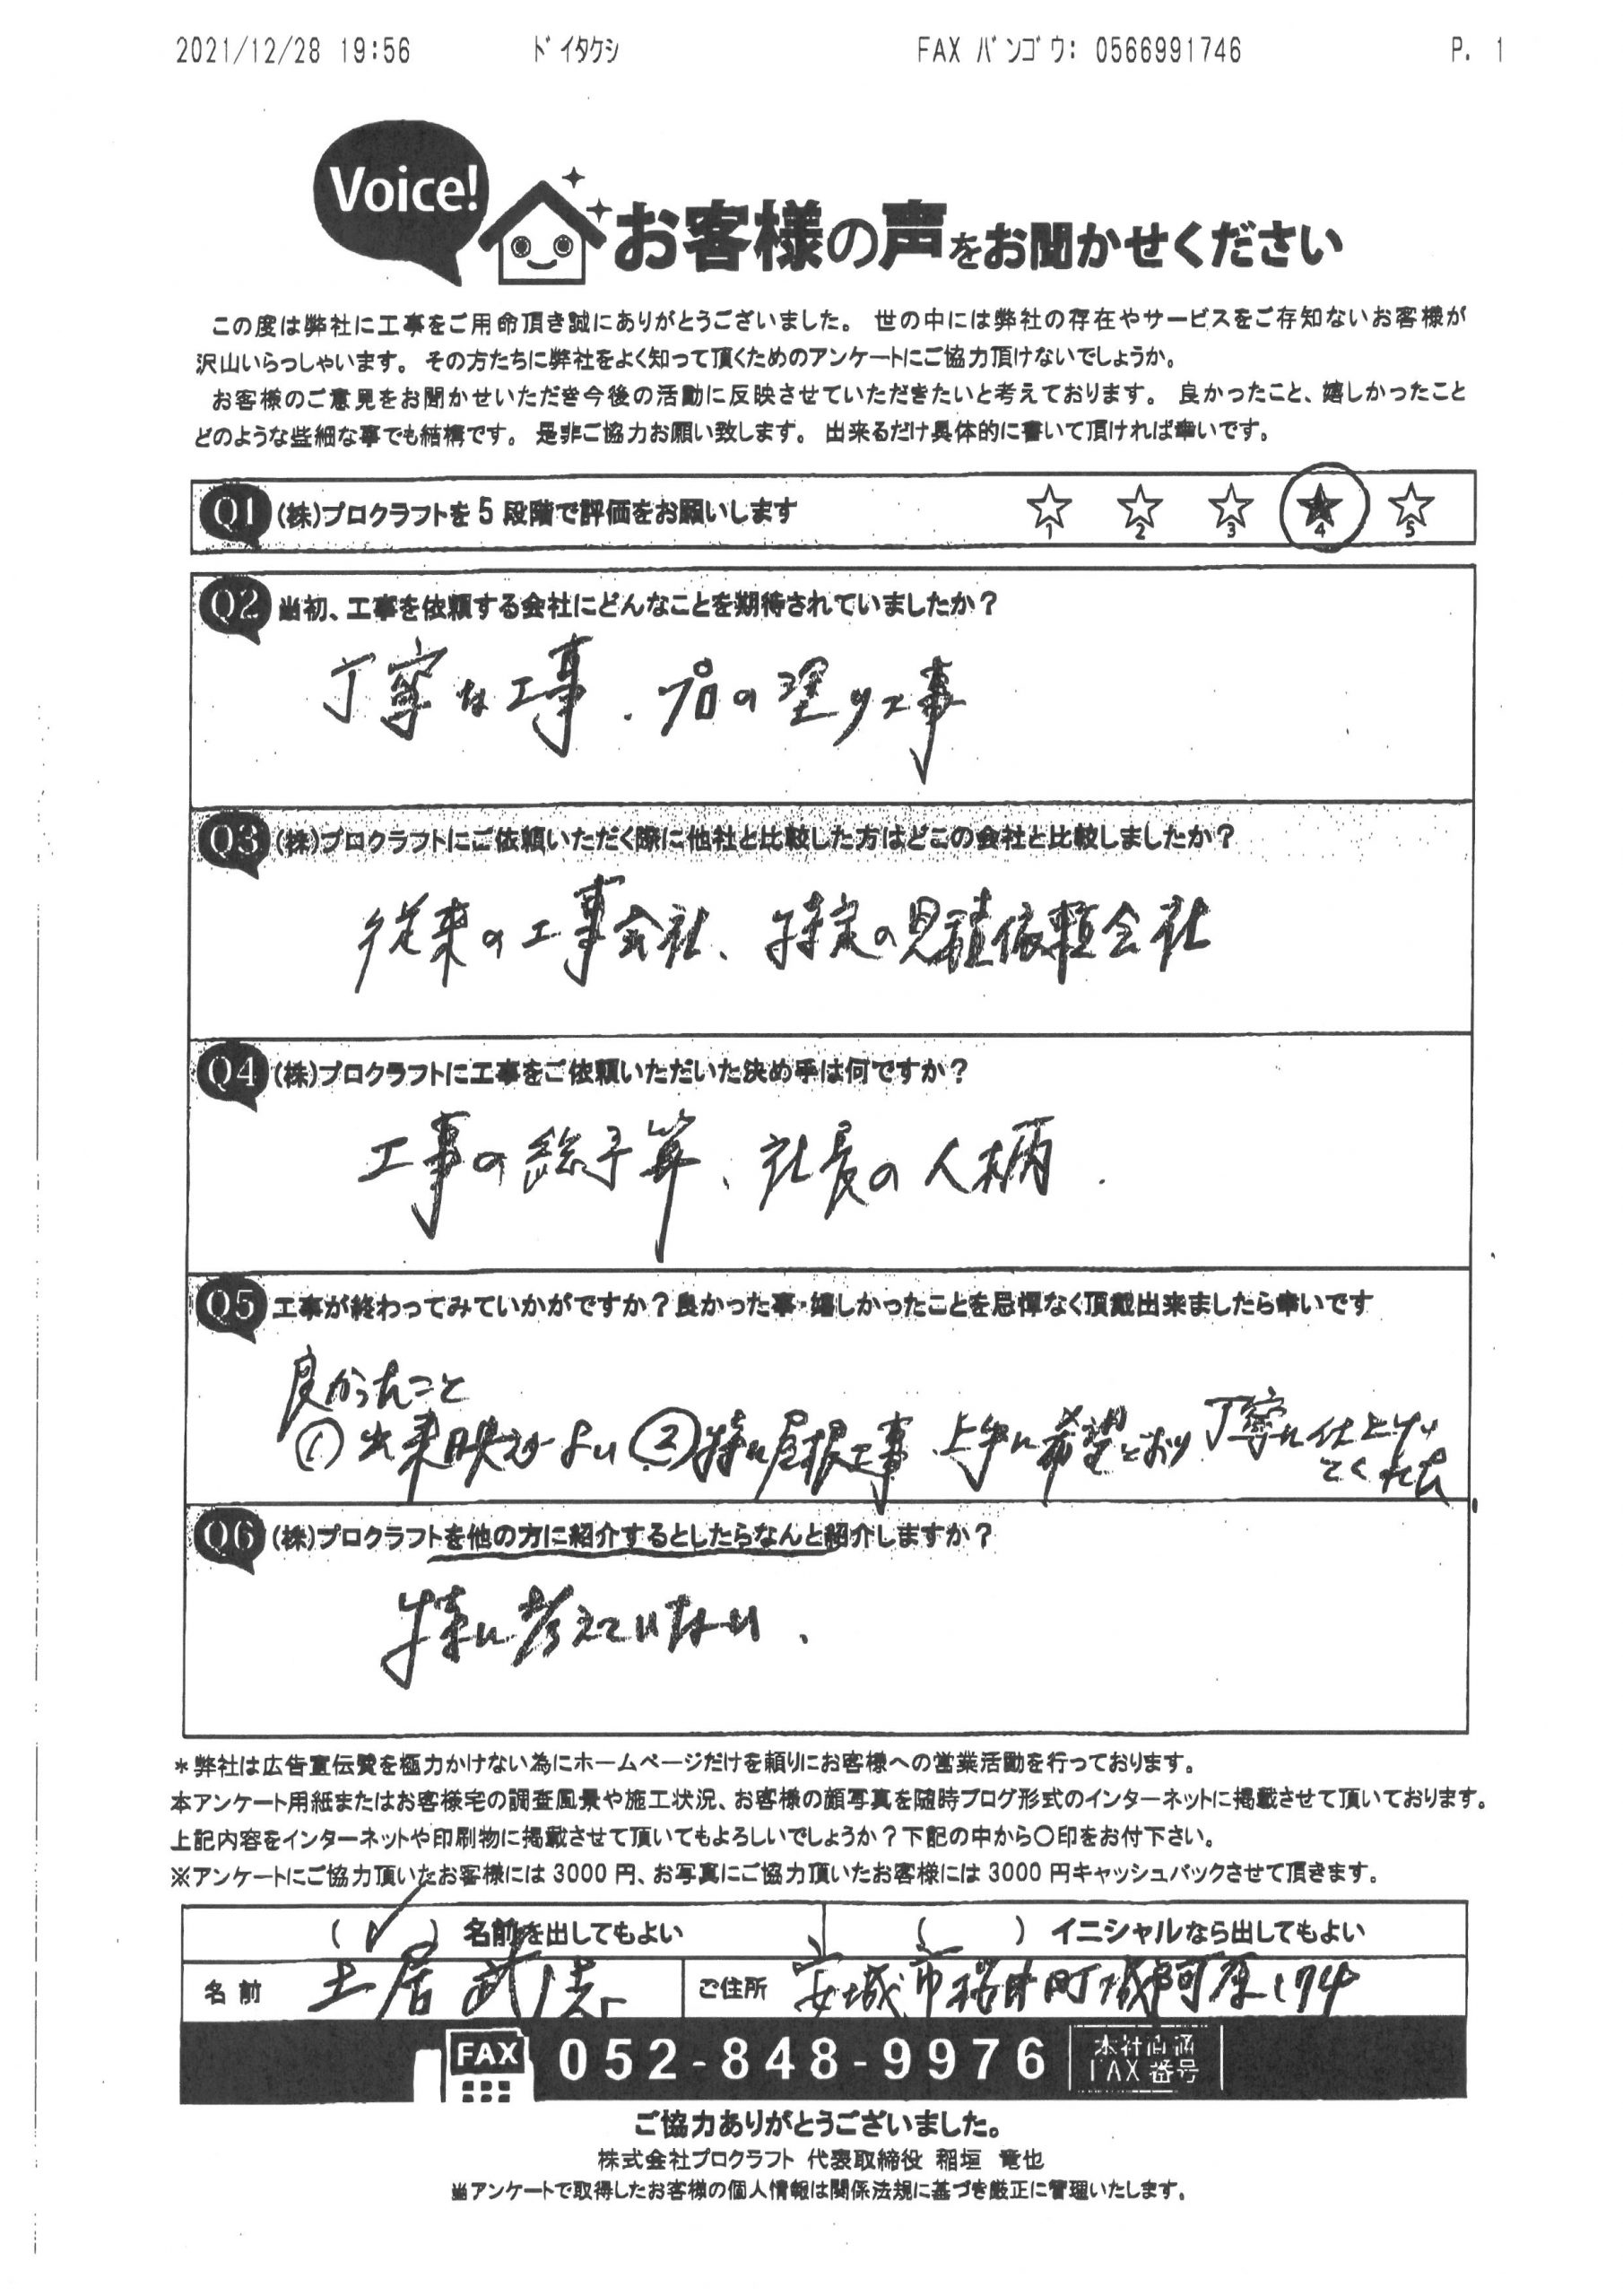 2021/12/28 19:56 ドイタケシ FAX バンゴウ: 0566991746 P. 1
Voice!
お客様の声をお聞かせください
この度は弊社に工事をご用命頂き誠にありがとうございました。 世の中には弊社の存在やサービスをご存知ないお客様が
沢山いらっしゃいます。 その方たちに弊社をよく知って頂くためのアンケートにご協力頂けないでしょうか。
お客様のご意見をお聞かせいただき今後の活動に反映させていただきたいと考えております。 良かったこと、嬉しかったこと
どのような些細な事でも結構です。 是非ご協力お願い致します。 出来るだけ具体的に書いて頂ければ幸いです。
Q1 (株)プロクラフトを5段階で評価をお願いします ☆1 ☆2 ☆3 ★4 ☆5
Q2 当初、工事を依頼する会社にどんなことを期待されていましたか?
丁寧な工事. プロの塗り工事
Q3 (株)プロクラフトにご依頼いただく際に他社と比較した方はどこの会社と比較しましたか?
従来の工事会社、特定の見積依頼会社
Q4 (株)プロクラフトに工事をご依頼いただいた決め手は何ですか?
工事の総予算、社長の人柄.
Q5 工事が終わってみていかがですか?良かった事・嬉しかったことを忌憚なく頂戴出来ましたら幸いです
良かったこと
① 出来映えがよい ②特に屋根工事、上手に希望どおり丁寧に仕上げ
てくれた
Q6 (株)プロクラフトを他の方に紹介するとしたらなんと紹介しますか?
特に考えていない.
*弊社は広告宣伝費を極力かけない為にホームページだけを頼りにお客様への営業活動を行っております。
本アンケート用紙またはお客様宅の調査風景や施工状況、お客様の顔写真を随時ブログ形式のインターネットに掲載させて頂いております。
上記内容をインターネットや印刷物に掲載させて頂いてもよろしいでしょうか?下記の中から〇印をお付下さい。
※アンケートにご協力頂いたお客様には3000円、お写真にご協力頂いたお客様には3000円キャッシュバックさせて頂きます。
(✓) 名前を出してもよい ( ) イニシャルなら出してもよい
名前 土居 武 ご住所 安城市桜井町城阿原174
FAX 052-848-9976 本社直通
FAX番号
ご協力ありがとうございました。
株式会社プロクラフト 代表取締役 稲垣 竜也
当アンケートで取得したお客様の個人情報は関係法規に基づき厳正に管理いたします。